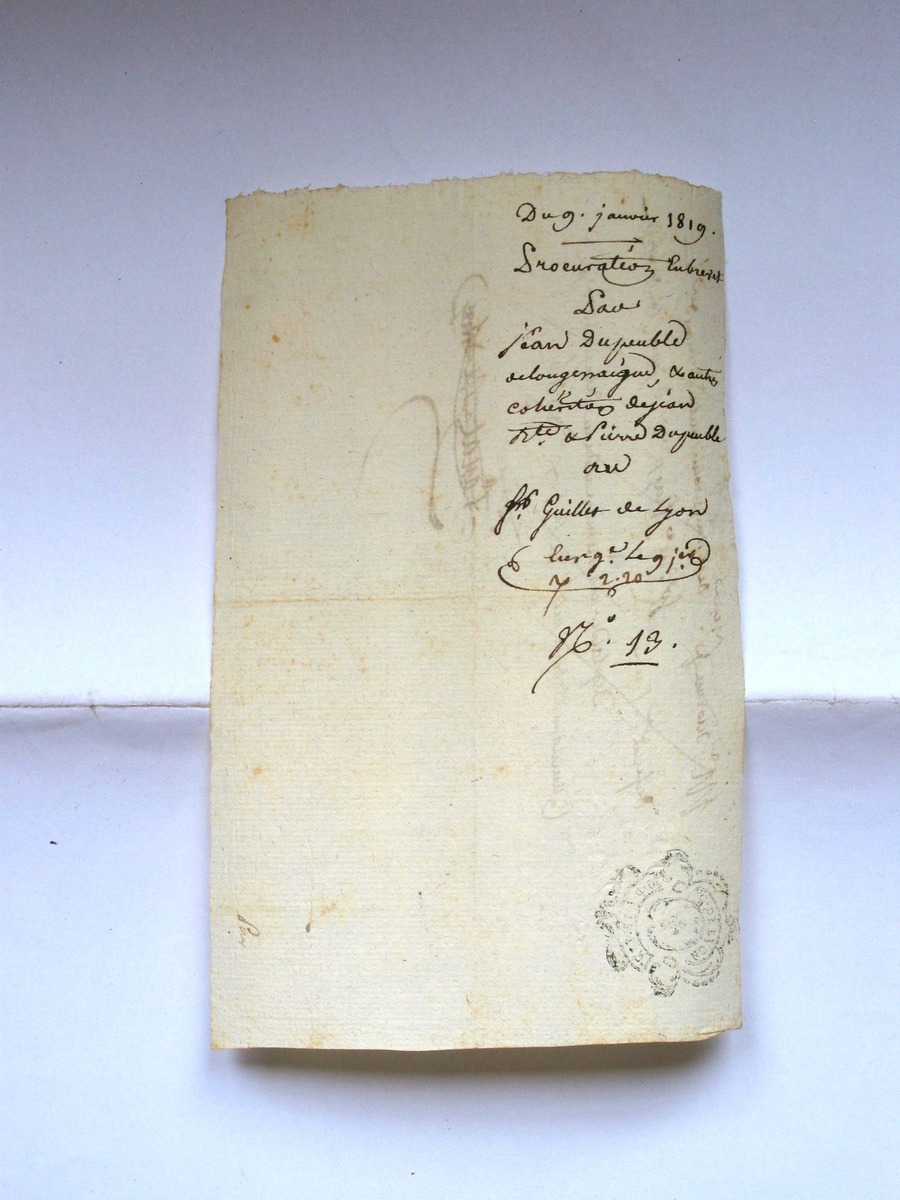 Du 9. janvier 1819.
Procuration Enbrevet
Par
jean Dupeuble
delongessaigne, & autres
cohéritiers dejean
Bte. & Pierre Dupeuble
au
Sr. Guillet de Lyon
Enrg.e Le 9 jer
7 2.20
No. 13.